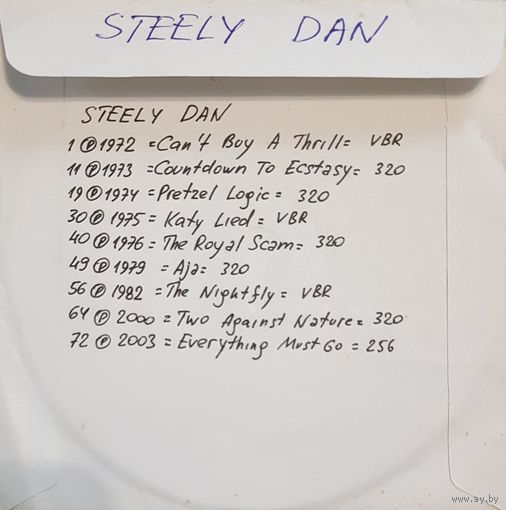 STEELY DAN
STEELY DAN
1 ℗ 1972 = Can't Buy A Thrill = VBR
11 ℗ 1973 = Countdown To Ecstasy = 320
19 ℗ 1974 = Pretzel Logic = 320
30 ℗ 1975 = Katy Lied = VBR
40 ℗ 1976 = The Royal Scam = 320
49 ℗ 1979 = Aja = 320
56 ℗ 1982 = The Nightfly = VBR
64 ℗ 2000 = Two Against Nature = 320
72 ℗ 2003 = Everything Must Go = 256
www.ay.by